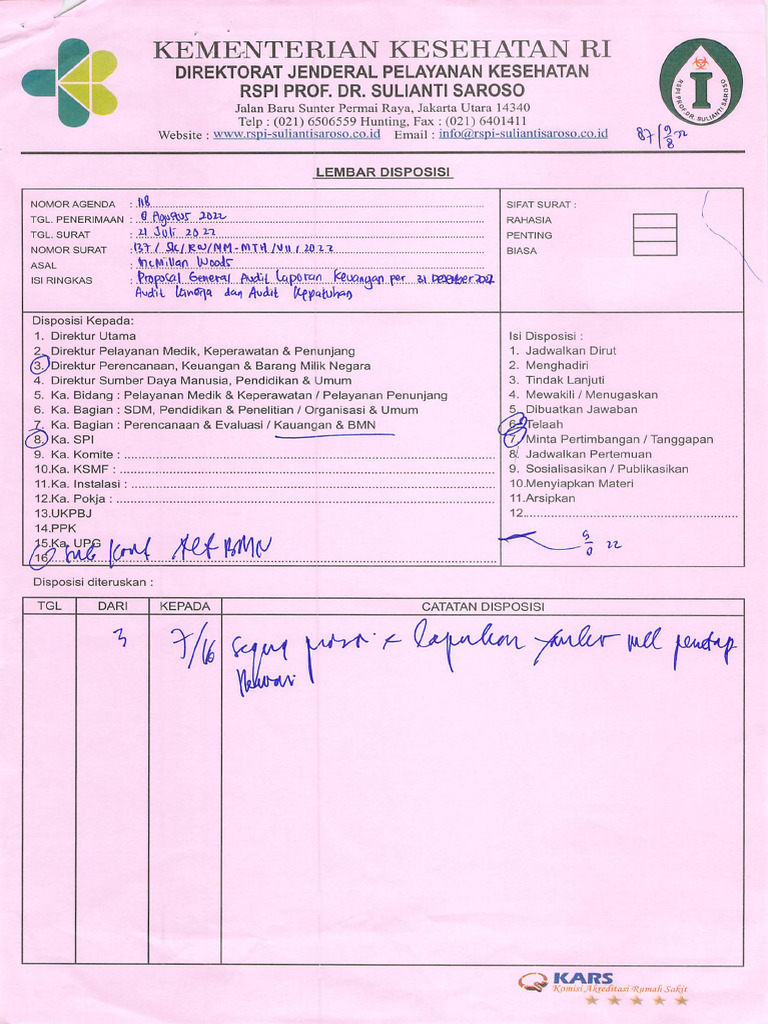 KEMENTERIAN KESEHATAN RI
DIREKTORAT JENDERAL PELAYANAN KESEHATAN
RSPI PROF. DR. SULIANTI SAROSO
Jalan Baru Sunter Permai Raya, Jakarta Utara 14340
Telp : (021) 6506559 Hunting, Fax : (021) 6401411
Website : www.rspi-suliantisaroso.co.id Email : info@rspi-suliantisaroso.co.id
RSPI PROF. DR. SULIANTI SAROSO
87/9/8 22
LEMBAR DISPOSISI
NOMOR AGENDA : 118
TGL. PENERIMAAN : 8 Agustus 2022
TGL. SURAT : 21 Juli 2022
NOMOR SURAT : 137/SK/RW/MM-MTH/VII/2022
ASAL : McMillan Woods
ISI RINGKAS : Proposal General Audit Laporan Keuangan per 31 Desember 2022
Audit Kinerja dan Audit Kepatuhan
SIFAT SURAT :
RAHASIA
PENTING
BIASA
Disposisi Kepada:
1. Direktur Utama
2. Direktur Pelayanan Medik, Keperawatan & Penunjang
3. Direktur Perencanaan, Keuangan & Barang Milik Negara
4. Direktur Sumber Daya Manusia, Pendidikan & Umum
5. Ka. Bidang : Pelayanan Medik & Keperawatan / Pelayanan Penunjang
6. Ka. Bagian : SDM, Pendidikan & Penelitian / Organisasi & Umum
7. Ka. Bagian : Perencanaan & Evaluasi / Kauangan & BMN
8. Ka. SPI
9. Ka. Komite :
10.Ka. KSMF :
11.Ka. Instalasi :
12.Ka. Pokja :
13.UKPBJ
14.PPK
15.Ka. UPG
16. BMN
Isi Disposisi :
1. Jadwalkan Dirut
2. Menghadiri
3. Tindak Lanjuti
4. Mewakili / Menugaskan
5. Dibuatkan Jawaban
6. Telaah
7. Minta Pertimbangan / Tanggapan
8. Jadwalkan Pertemuan
9. Sosialisasikan / Publikasikan
10.Menyiapkan Materi
11.Arsipkan
12.
9/8 22
Disposisi diteruskan :
TGL DARI KEPADA CATATAN DISPOSISI
3 7/16 segera laporkan
KARS
Komisi Akreditasi Rumah Sakit